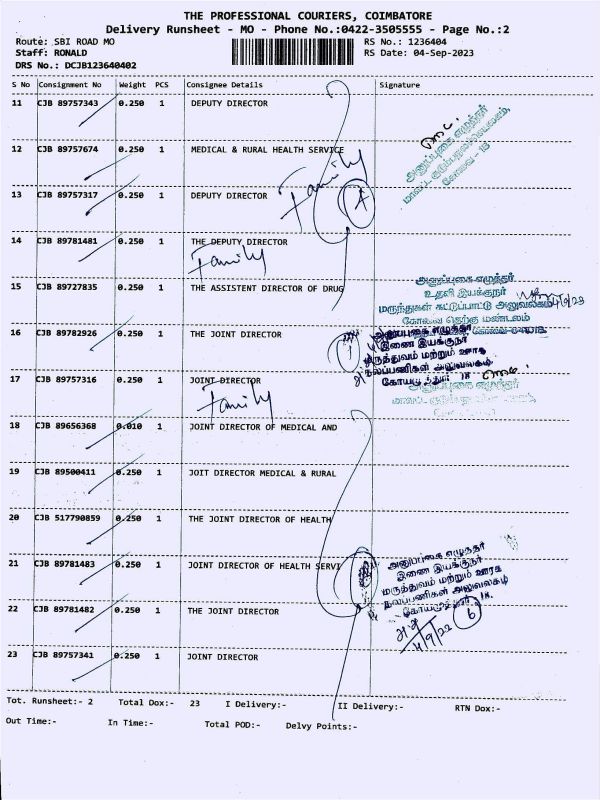 THE PROFESSIONAL COURIERS, COIMBATORE
Delivery Runsheet - MO - Phone No.:0422-3505555 - Page No.:2
Route: SBI ROAD MO
RS No.: 1236404
Staff: RONALD
RS Date: 04-Sep-2023
DRS No.: DCJB123640402
S No Consignment No Weight PCS Consignee Details Signature
11 CJB 89757343 0.250 1 DEPUTY DIRECTOR
12 CJB 89757674 0.250 1 MEDICAL & RURAL HEALTH SERVICE
Family
13 CJB 89757317 0.250 1 DEPUTY DIRECTOR
4
அனுப்புகை எழுத்தர்
14 CJB 89781481 0.250 1 THE DEPUTY DIRECTOR
Family
15 CJB 89727835 0.250 1 THE ASSISTENT DIRECTOR OF DRUG
அனுப்புகை எழுத்தர்
உதவி இயக்குநர்
மருந்துகள் கட்டுப்பாட்டு அலுவலகம்
கோவை தெற்கு மண்டலம்
16 CJB 89782926 0.250 1 THE JOINT DIRECTOR
1
அனுப்புகை எழுத்தர்
இணை இயக்குநர்
மருத்துவம் மற்றும் ஊரக
நலப்பணிகள் அலுவலகம்
18
17 CJB 89757316 0.250 1 JOINT DIRECTOR
Family
அனுப்புகை எழுத்தர்
18 CJB 89656368 0.010 1 JOINT DIRECTOR OF MEDICAL AND
19 CJB 89500411 0.250 1 JOIT DIRECTOR MEDICAL & RURAL
20 CJB 517790859 0.250 1 THE JOINT DIRECTOR OF HEALTH
21 CJB 89781483 0.250 1 JOINT DIRECTOR OF HEALTH SERVI
அனுப்புகை எழுத்தர்
இணை இயக்குநர்
மருத்துவம் மற்றும் ஊரக
நலப்பணிகள் அலுவலகம்
18.
6
22 CJB 89781482 0.250 1 THE JOINT DIRECTOR
23 CJB 89757341 0.250 1 JOINT DIRECTOR
Tot. Runsheet:- 2 Total Dox:- 23 I Delivery:- II Delivery:- RTN Dox:-
Out Time:- In Time:- Total POD:- Delvy Points:-